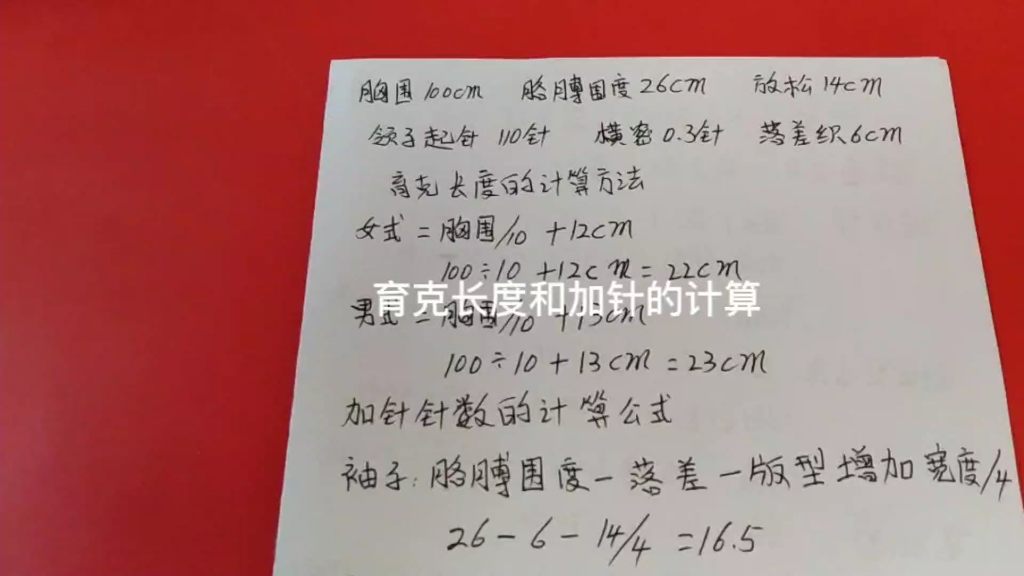 胸围100cm 胳膊围度26cm 放松14cm
领子起针 110针 横密0.3针 落差织6cm
育克长度的计算方法
女式=胸围/10 +12cm
100÷10 +12cm=22cm
育克长度和加针的计算
男式=胸围/10 +13cm
100÷10+13cm=23cm
加针针数的计算公式
袖子:胳膊围度-落差-版型增加宽度/4
26-6-14/4=16.5